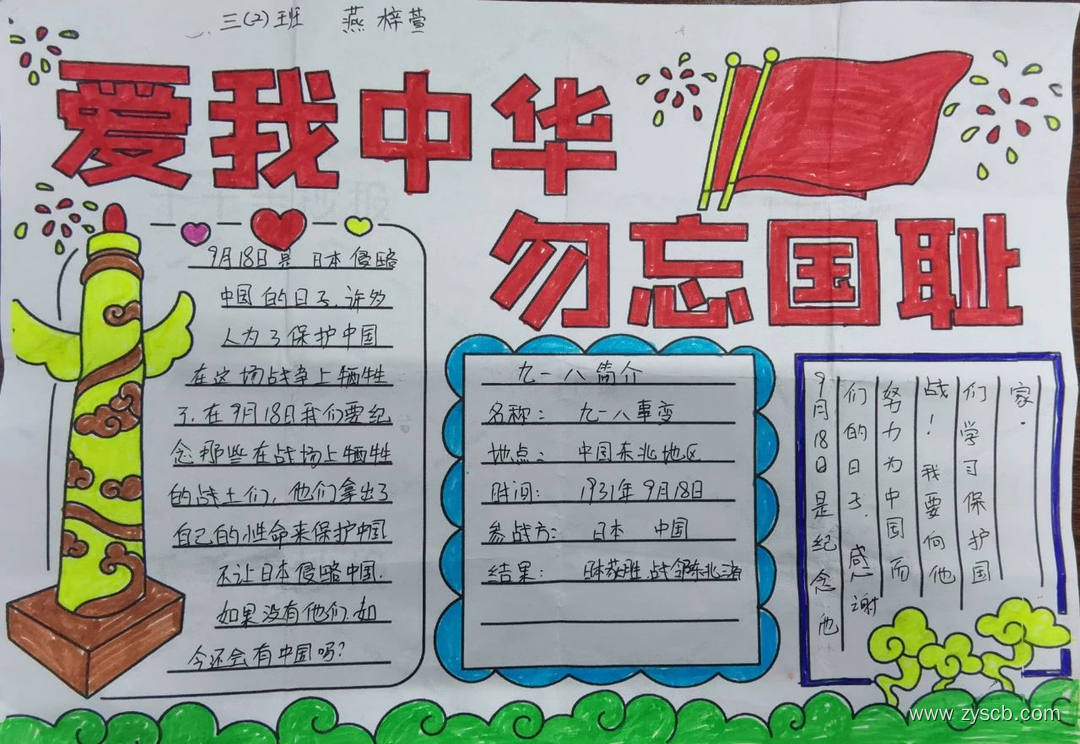 三(2)班 燕梓萱
爱我中华
勿忘国耻
9月18日是 日本侵略
中国的日子.许多
人为了保护中国
在这场战争上牺牲
了.在9月18日我们要纪
念那些在战场上牺牲
的战士们,他们拿出了
自己的性命来保护中国
不让日本侵略中国.
如果没有他们.如
今还会有中国吗?
九一八简介
名称: 九一八事变
地点: 中国东北地区
时间: 1931年9月18日
参战方: 日本 中国
结果: 日本获胜,战领东北三省
9月18日是纪念他
们的日子.感谢
努力为中国而
战!我要向他
们学习保护国
家.
www.zyscb.com